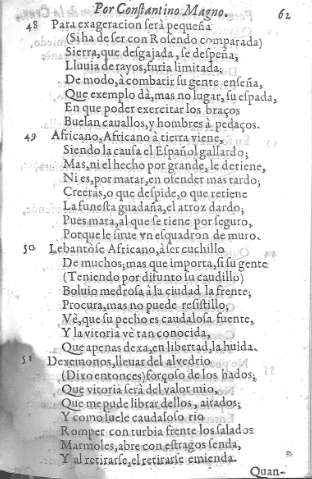 Por Constantino Magno. 62
48 Para exageracion serà pequeña
(Si ha de ser con Rosendo comparada)
Sierra, que desgajada, se despeña;
Lluuia de rayos, furia limitada;
De modo, à combatir su gente enseña,
Que exemplo dà, mas no lugar, su espada,
En que poder exercitar los braços
Buelan cauallos, y hombres à pedaços.
49 Africano, Africano à tierra viene,
Siendo la causa el Español gallardo;
Mas, ni el hecho por grande, le detiene,
Ni es, por matar, en ofender mas tardo;
Creeras, o que despide, o que retiene
La funesta guadaña, el atroz dardo;
Pues mata, al que se tiene por seguro,
Porque le sirue vn esquadron de muro.
50 Lebantòse Africano, à ser cuchillo
De muchos; mas que importa, si su gente
(Teniendo por difunto su caudillo)
Boluio medrosa à la ciudad la frente;
Procura, mas no puede resistillo;
Vè, que su pecho es caudalosa fuente,
Y la vitoria vè tan conocida,
Que apenas dexa, en libertad, la huida.
51 Dexemonos, lleuar del alvedrio
(Dixo entonces) forçoso de los hados;
Que vitoria serà del valor mio,
Que me pude librar dellos, airados;
Y como suele caudaloso rio
Romper con turbia frente los salados
Marmoles, abre con estragos senda,
Y al retirarse, el retirarse emienda.
Quan-